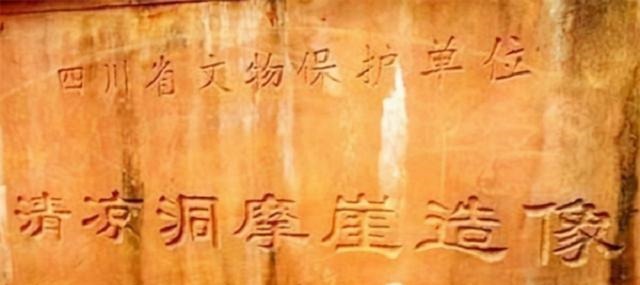 四川省文物保护单位
清凉洞摩崖造像